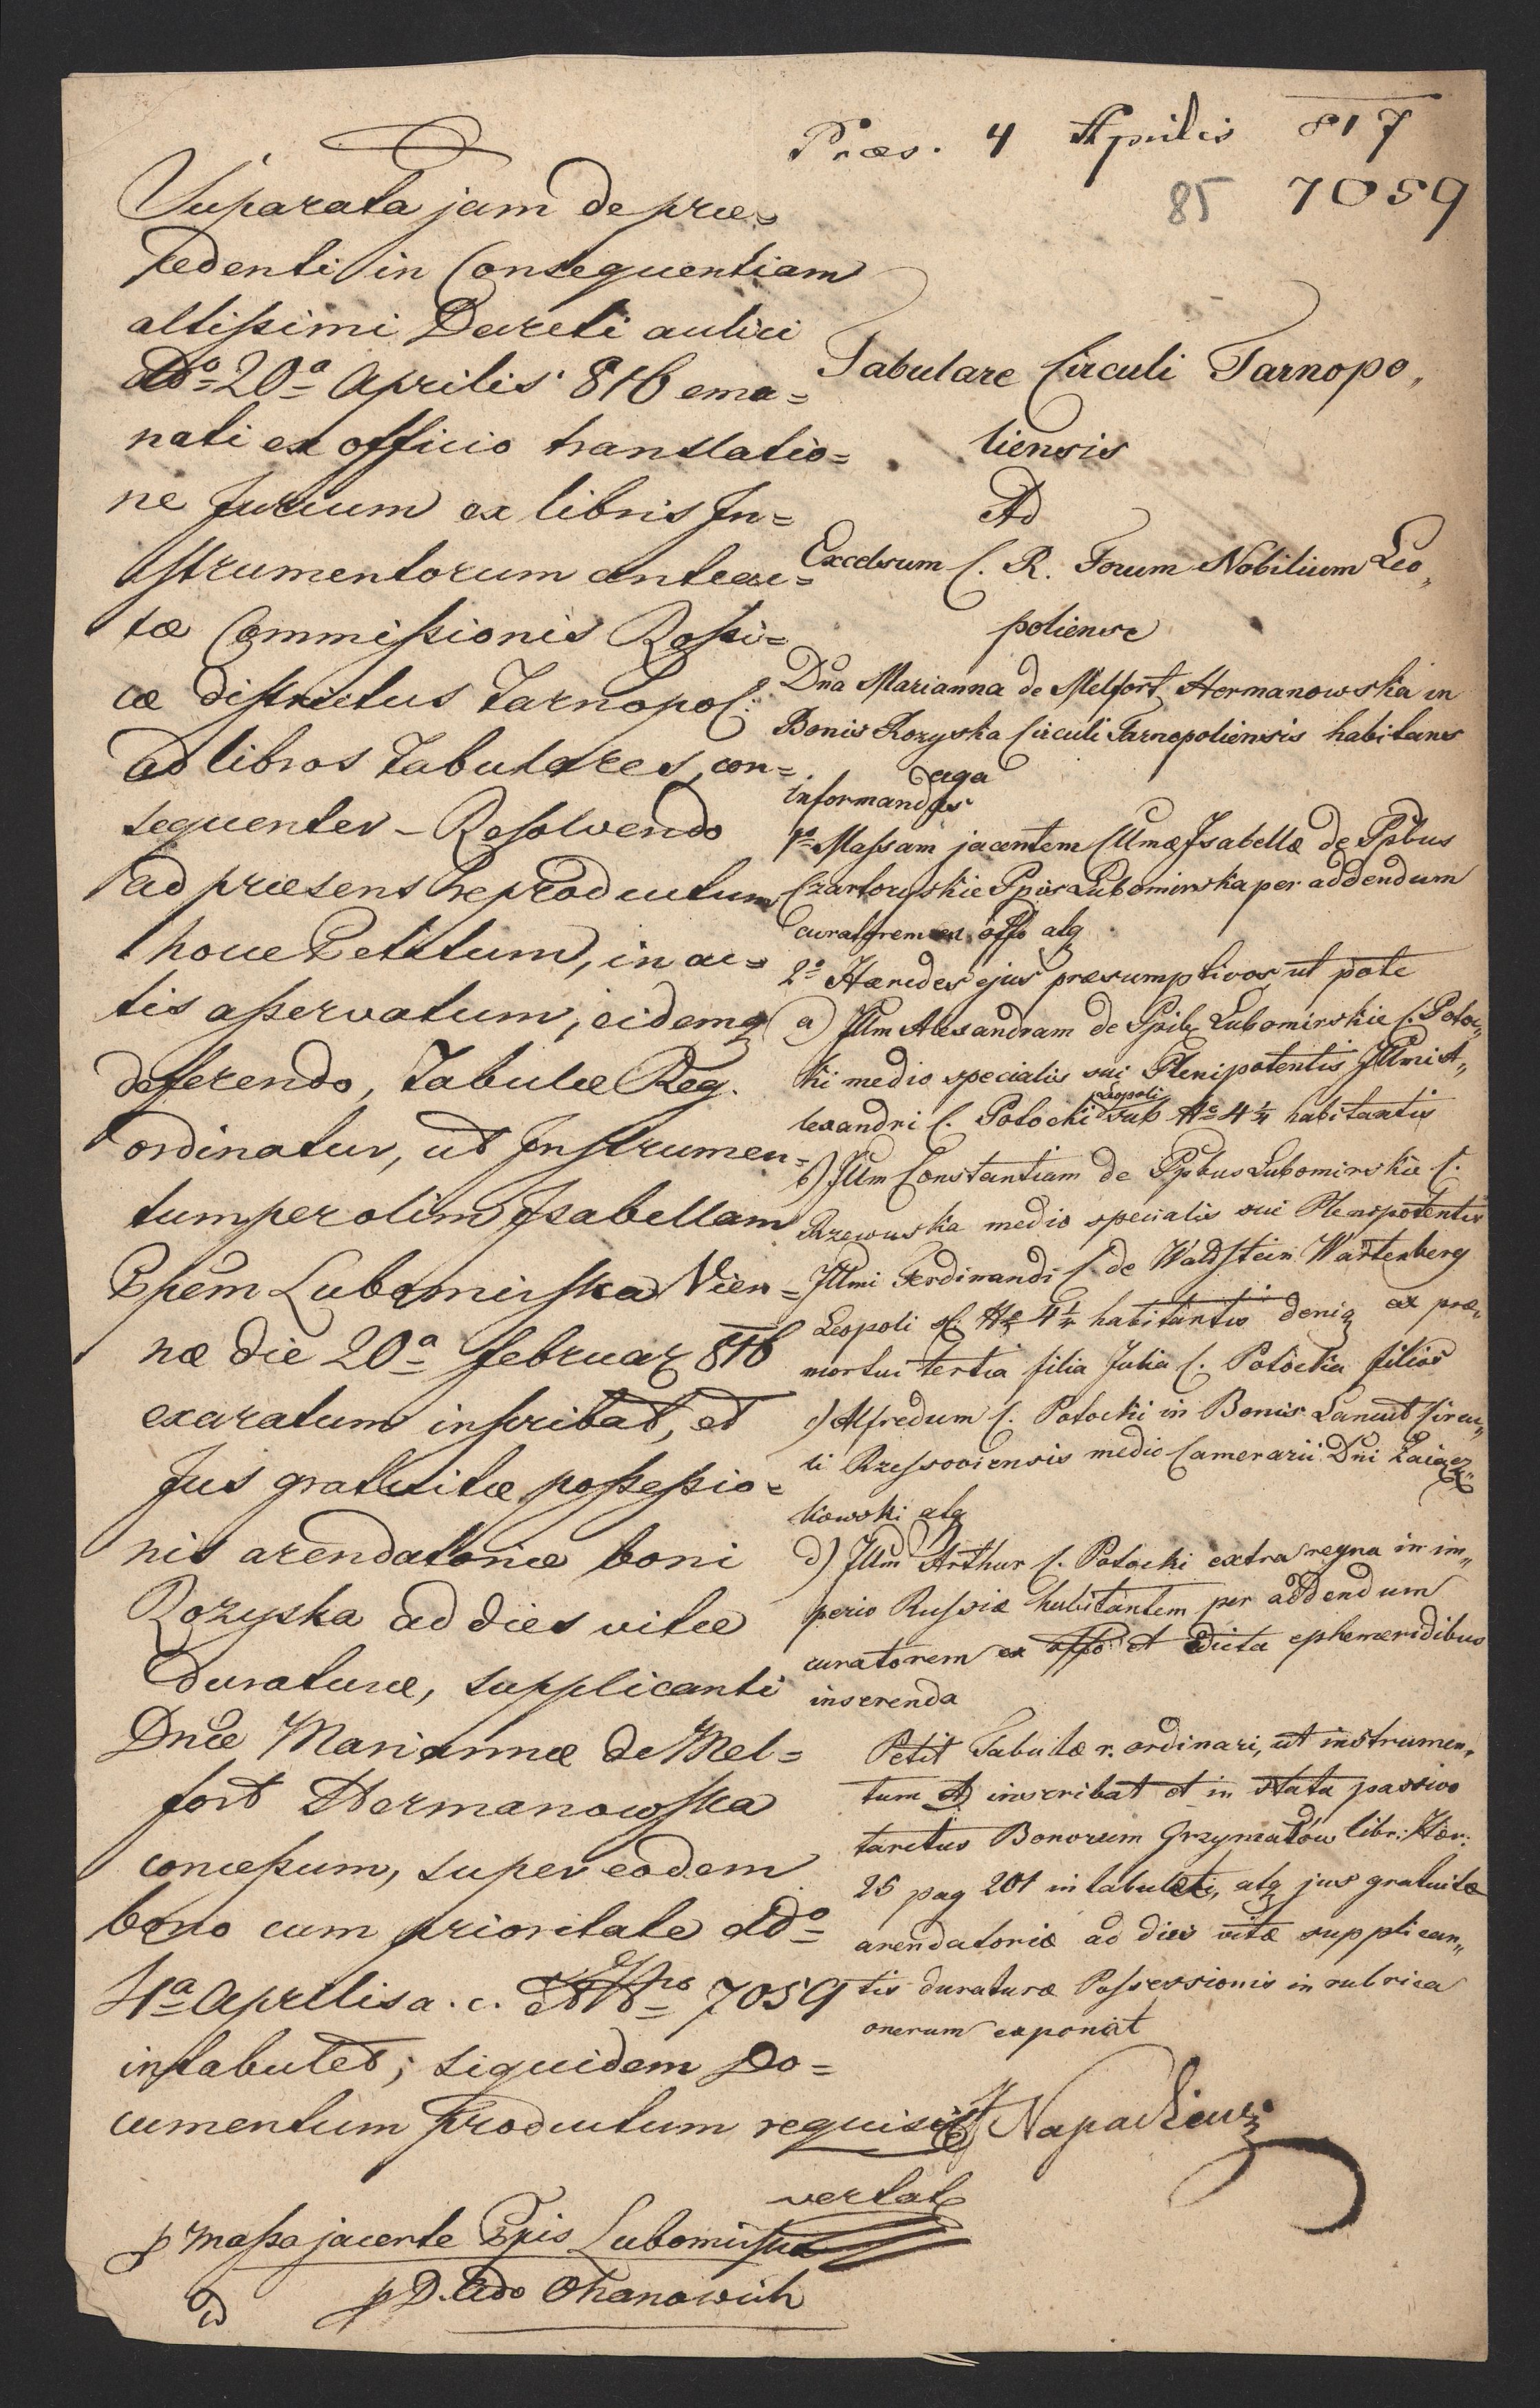 Præs. 4 Aprilis 817
85 7059
Superata jam de præ=
cedenti in Consequentiam
altissimi Decreti aulici
ddo 20a Aprilis 816 ema=
nati ex officio translatio=
ne Jurium ex libris In=
strumentorum anteac=
tæ Commissionis Rossi=
cæ districtus Tarnopol:
ad libros tabulares, con=
sequenter – Resolvendo
ad præsens reproductum
hocce Petitum, in ac=
tis asservatum, eidemq
deferendo, Tabulæ Reg.
ordinatur, ut Instrumen=
tum per olim Isabellam
Ppem Lubomirska Vien=
næ die 20a februar 816
exaratum inscribat, et
Jus gratuitæ possessio=
nis arendatoriæ boni
Rozyska ad dies vitæ
duraturæ, supplicanti
Dnæ Mariannæ de Mel=
fort Hermanowska
concessum, super eodem
bono cum prioritate ddo
4a Aprilis a. c. 7059
intabulet; siquidem Do=
cumentum productum requisit
vertat
p massa jacente Ppis Lubomirska
p D. Ado Ohanowich
Tabulare Circuli Tarnopo„
liensis
Ad
Excelsum C. R. Forum Nobilium Leo„
poliense
Dna Marianna de Melfort Hermanowska in
Bonis Rozyska Circuli Tarnopoliensis habitans
erga
informandos
1o Massam jacentem Illmæ Isabellæ de Ppbus
Czartoryskie Ppis Lubomirska per addendum
curatorem ex offo atq
2o Hæredes ejus præsumptivos ut pote
a) Illm Alexandram de Ppib Lubomirskie C. Potoc„
ki medio specialis sui Plenipotentis Illmi A„
lexandri C. Potocki Leopoli sub No 4 1/4 habitantis
b) Illm Constantiam de Ppbus Lubomirskie C.
Rzewuska medio specialis sui Plenipotentis
Illmi Ferdinandi C. de Waldstein Wartenberg
Leopoli s. No 4 1/4 habitantis deniq ex præ„
mortui tertia filia Julia C. Potocka filios
c) Alfredum C. Potocki in Bonis Lancut Circu„
li Rzessoviensis medio Camerarii Dni Laiacz„
kowski atq
d) Illm Arthur C. Potocki extra regna in im„
perio Russiæ habitantem per addendum
curatorem ex offo et Edicta ephemeridibus
inserenda
Petit Tabulæ r. ordinari, ut instrumen„
tum A) inscribat et in statu passivo
tarctus Bonorum Grzymałow libr: Hær:
25 pag 201 intabulati, atq jus gratuitæ
arendatoriæ ad dies vitæ supplican„
tis duraturæ Possessionis in rubrica
onerum exponat
Napadiewicz